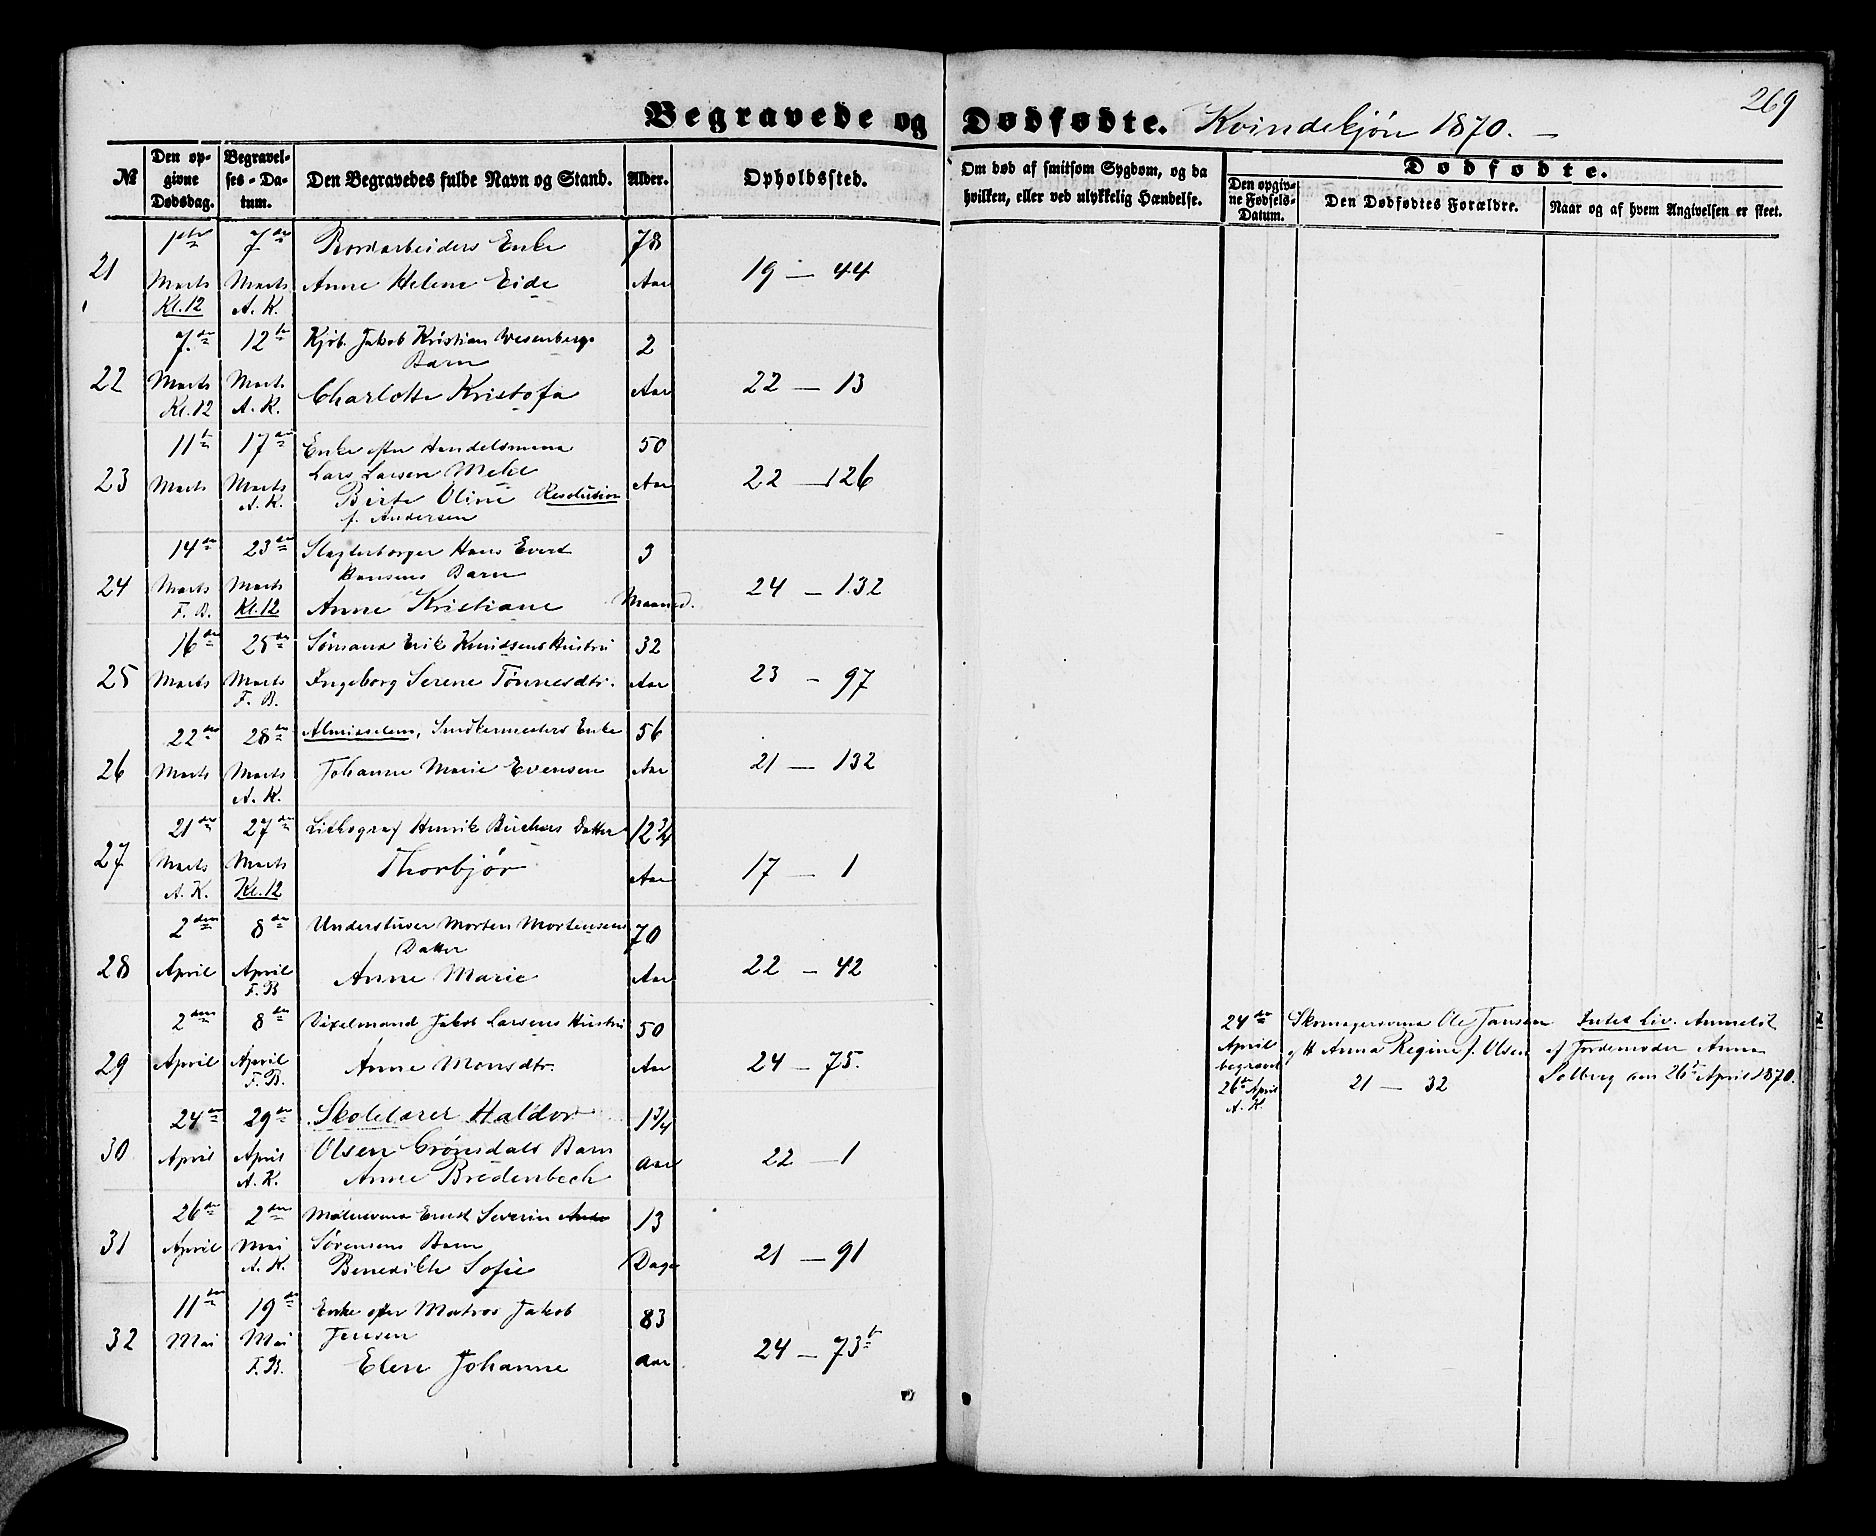 269
Begravede og Dødfødte. Kvindekjøn 1870. —
№ Den opgivne Dødsdag. Begravelses-Datum. Den Begravedes fulde Navn og Stand. Alder. Opholdssted. Om død af smitsom Sygdom, og da hvilken, eller ved ulykkelig Hændelse. Dødfødte.
Den opgivne Fødsels-Datum. Den Dødfødtes Forældre. Naar og af hvem Angivelsen er skeet.
21 1ste 7de Bordarbeiders Enke 78
Marts Marts Anne Helene Eide Aar 19 — 44
Kl. 12 A. K.
7de 12te Kjøb. Jakob Kristian Wesenbergs 2
Barn
22 Marts Marts Charlotte Kristofa Aar 22 — 13
Kl. 12 A. K.
11te 17de Enke efter Handelsmand 50
23 Marts Marts Lars Larsen Mehl Aar 22 — 126
A. K. Birte Oline Resolution
f. Andersen
14de 23de Slagterborger Hans Evert 3
Hansens Barn
24 Marts Marts Anne Kristiane Maaned. 24 — 132
F. B. Kl. 12
16de 25de Sømand Erik Knudsens Hustru 32
25 Marts Marts Ingeborg Serene Tønnesdtr. Aar 23 — 97
F. B.
22de 28de Almisselem, Smedkermesters Enke 56
26 Marts Marts Johanne Marie Evensen Aar 21 — 132
A. K.
21de 27de Lithograf Henrik Buchers Datter 12 3/4
27 Marts Marts Thorbjør Aar 17 — 1
A. K. Kl. 12
2den 8de Morten Mortensens 70
Datter
28 April April Anne Marie Aar 22 — 42
F. B.
2den 8de Jakob Larsens Hustru 50
29 April April Anne Monsdtr. Aar 24 — 75.
F. B.
24de Skomagersvend Ole Jansen Intet Liv. Anmeldt
April og H Anna Regine f. Olsen af Jordemoder Anna
begravet 21 — 32 Solberg den 26de April 1870.
26de April
A. K.
24de 29de Skolelærer Haldor 1 3/4
30 April April Olsen Grønsdals Barn Aar 22 — 1
A. K. Anne Bredenbech
26de 2den Malersvend Ernst Severin 13
31 April Mai Sørensens Barn Dage 21 — 91
A. K. Benedikte Sofie
11te 19de Enke efter Matros Jakob 83
32 Mai Mai Jensen Aar 24 — 73b
F. B. Elen Johanne